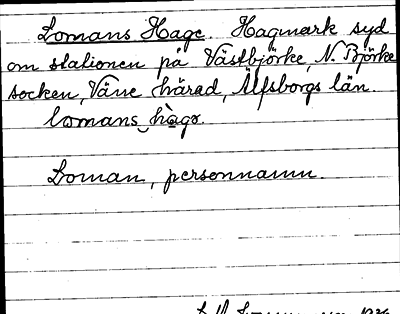 Lomans Hage. Hagmark syd
om stationen på Västbjörke, N. Björke
socken, Väne härad, Älfsborgs län.
lomans‿hàgə.
Loman, personnamn.